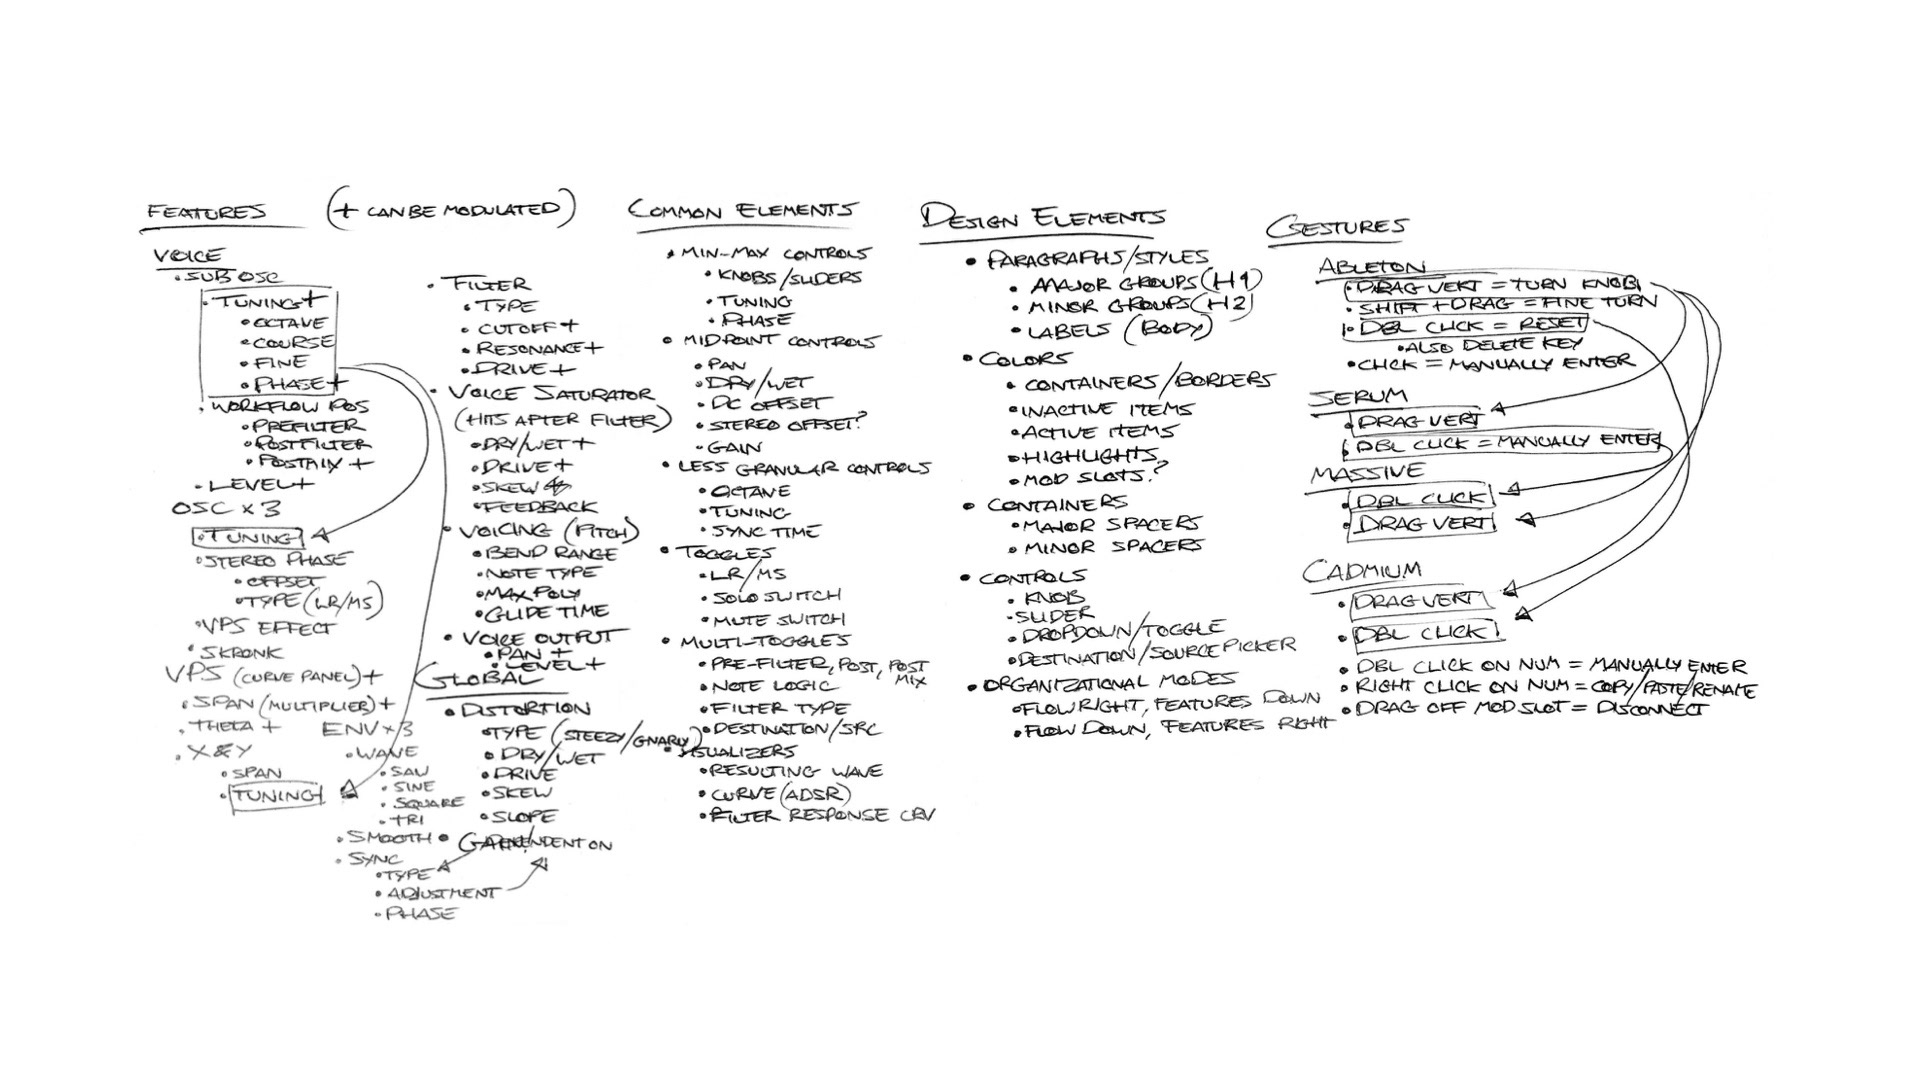 FEATURES (+ CAN BE MODULATED)
VOICE
• SUB OSC
• TUNING +
• OCTAVE
• COURSE
• FINE
• PHASE +
• WORKFLOW POS
• PREFILTER
• POSTFILTER
• POSTMIX +
• LEVEL +
OSC x 3
• TUNING
• STEREO PHASE
• OFFSET
• TYPE (LR/MS)
• VPS EFFECT
• SKRONK
VPS (CURVE PANEL) +
• SPAN (MULTIPLIER) +
• THETA +
• X & Y
• SPAN
• TUNING
ENV x 3
• WAVE
• SAW
• SINE
• SQUARE
• TRI
• SMOOTH
• SYNC
• TYPE
• ADJUSTMENT
• PHASE
• FILTER
• TYPE
• CUTOFF +
• RESONANCE +
• DRIVE +
• VOICE SATURATOR
(HITS AFTER FILTER)
• DRY/WET +
• DRIVE +
• SKEW
• FEEDBACK
• VOICING (PITCH)
• BEND RANGE
• NOTE TYPE
• MAX POLY
• GLIDE TIME
• VOICE OUTPUT
• PAN +
• LEVEL +
GLOBAL
• DISTORTION
• TYPE (STEEZY/GNARLY)
• DRY/WET
• DRIVE
• SKEW
• SLOPE
COMMON ELEMENTS
• MIN-MAX CONTROLS
• KNOBS/SLIDERS
• TUNING
• PHASE
• MIDPOINT CONTROLS
• PAN
• DRY/WET
• DC OFFSET
• STEREO OFFSET?
• GAIN
• LESS GRANULAR CONTROLS
• OCTAVE
• TUNING
• SYNC TIME
• TOGGLES
• LR/MS
• SOLO SWITCH
• MUTE SWITCH
• MULTI-TOGGLES
• PRE-FILTER, POST, POST
MIX
• NOTE LOGIC
• FILTER TYPE
• DESTINATION/SRC
• VISUALIZERS
• RESULTING WAVE
• CURVE (ADSR)
• FILTER RESPONSE CRV
DESIGN ELEMENTS
• PARAGRAPHS/STYLES
• MAJOR GROUPS (H1)
• MINOR GROUPS (H2)
• LABELS (BODY)
• COLORS
• CONTAINERS/BORDERS
• INACTIVE ITEMS
• ACTIVE ITEMS
• HIGHLIGHTS
• MOD SLOTS?
• CONTAINERS
• MAJOR SPACERS
• MINOR SPACERS
• CONTROLS
• KNOB
• SLIDER
• DROPDOWN/TOGGLE
• DESTINATION/SOURCE PICKER
• ORGANIZATIONAL MODES
• FLOW RIGHT, FEATURES DOWN
• FLOW DOWN, FEATURES RIGHT
GESTURES
ABLETON
• DRAG VERT = TURN KNOB
• SHIFT + DRAG = FINE TURN
• DBL CLICK = RESET
• ALSO DELETE KEY
• CLICK = MANUALLY ENTER
SERUM
• DRAG VERT
• DBL CLICK = MANUALLY ENTER
MASSIVE
• DBL CLICK
• DRAG VERT
CADMIUM
• DRAG VERT
• DBL CLICK
• DBL CLICK ON NUM = MANUALLY ENTER
• RIGHT CLICK ON NUM = COPY/PASTE/RENATE
• DRAG OFF MOD SLOT = DISCONNECT